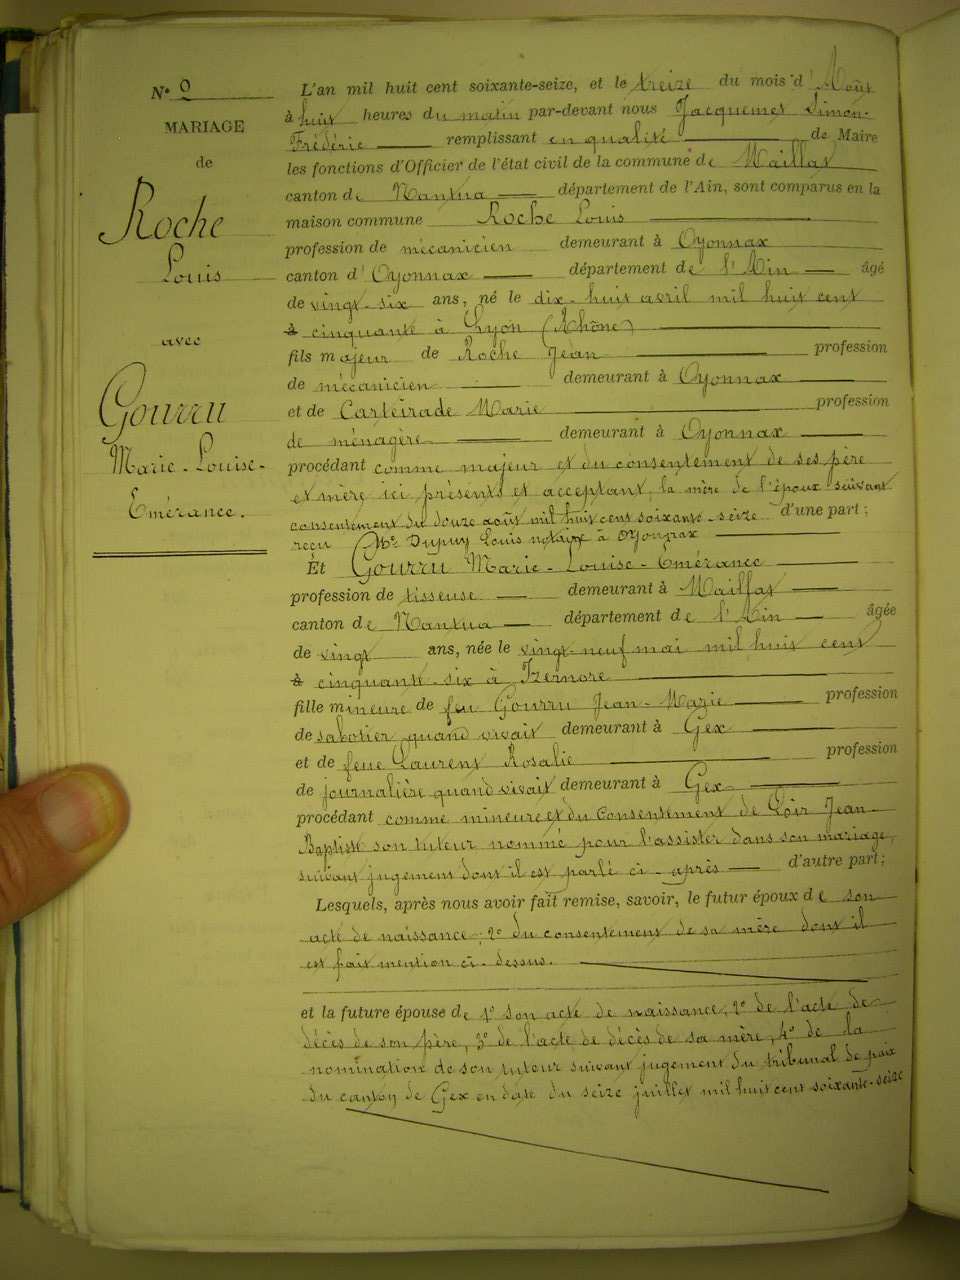 N° 9
MARIAGE
de
Roche
Louis
avec
Gourru
Marie-Louise-
Emérance.
L'an mil huit cent soixante-seize, et le treize du mois d'Août
à huit heures du matin par-devant nous Jacquemet Simon-
Frédéric remplissant en qualité de Maire
les fonctions d'Officier de l'état civil de la commune de Maillat
canton de Nantua département de l'Ain, sont comparus en la
maison commune Roche Louis
profession de mécanicien demeurant à Oyonnax
canton d'Oyonnax département de l'Ain âgé
de vingt-six ans, né le dix-huit avril mil huit cent
à cinquante à Lyon (Rhône)
fils majeur de Roche Jean profession
de mécanicien demeurant à Oyonnax
et de Carteirade Marie profession
de ménagère demeurant à Oyonnax
procédant comme majeur et du consentement de ses père
et mère ici présents et acceptant, la mère de l'époux suivant
consentement du douze août mil huit cent soixante-seize d'une part;
reçu Me Dupuy Louis notaire à Oyonnax
Et Gourru Marie-Louise-Emérance
profession de tisseuse demeurant à Maillat
canton de Nantua département de l'Ain âgée
de vingt ans, née le vingt-neuf mai mil huit cent
à cinquante-six à Izernore
fille mineure de feu Gourru Jean-Marie profession
de sabotier quand vivait demeurant à Gex
et de feue Laurent Rosalie profession
de journalière quand vivait demeurant à Gex
procédant comme mineure et du consentement de Loir Jean-
Baptiste son tuteur nommé pour l'assister dans son mariage,
suivant jugement dont il est parlé ci-après d'autre part;
Lesquels, après nous avoir fait remise, savoir, le futur époux de son
acte de naissance; 2° du consentement de sa mère dont il
est fait mention ci-dessus.
et la future épouse de 1° son acte de naissance, 2° de l'acte de
décès de son père, 3° de l'acte de décès de sa mère, 4° de la
nomination de son tuteur suivant jugement du tribunal de paix
du canton de Gex en date du seize juillet mil huit cent soixante-seize